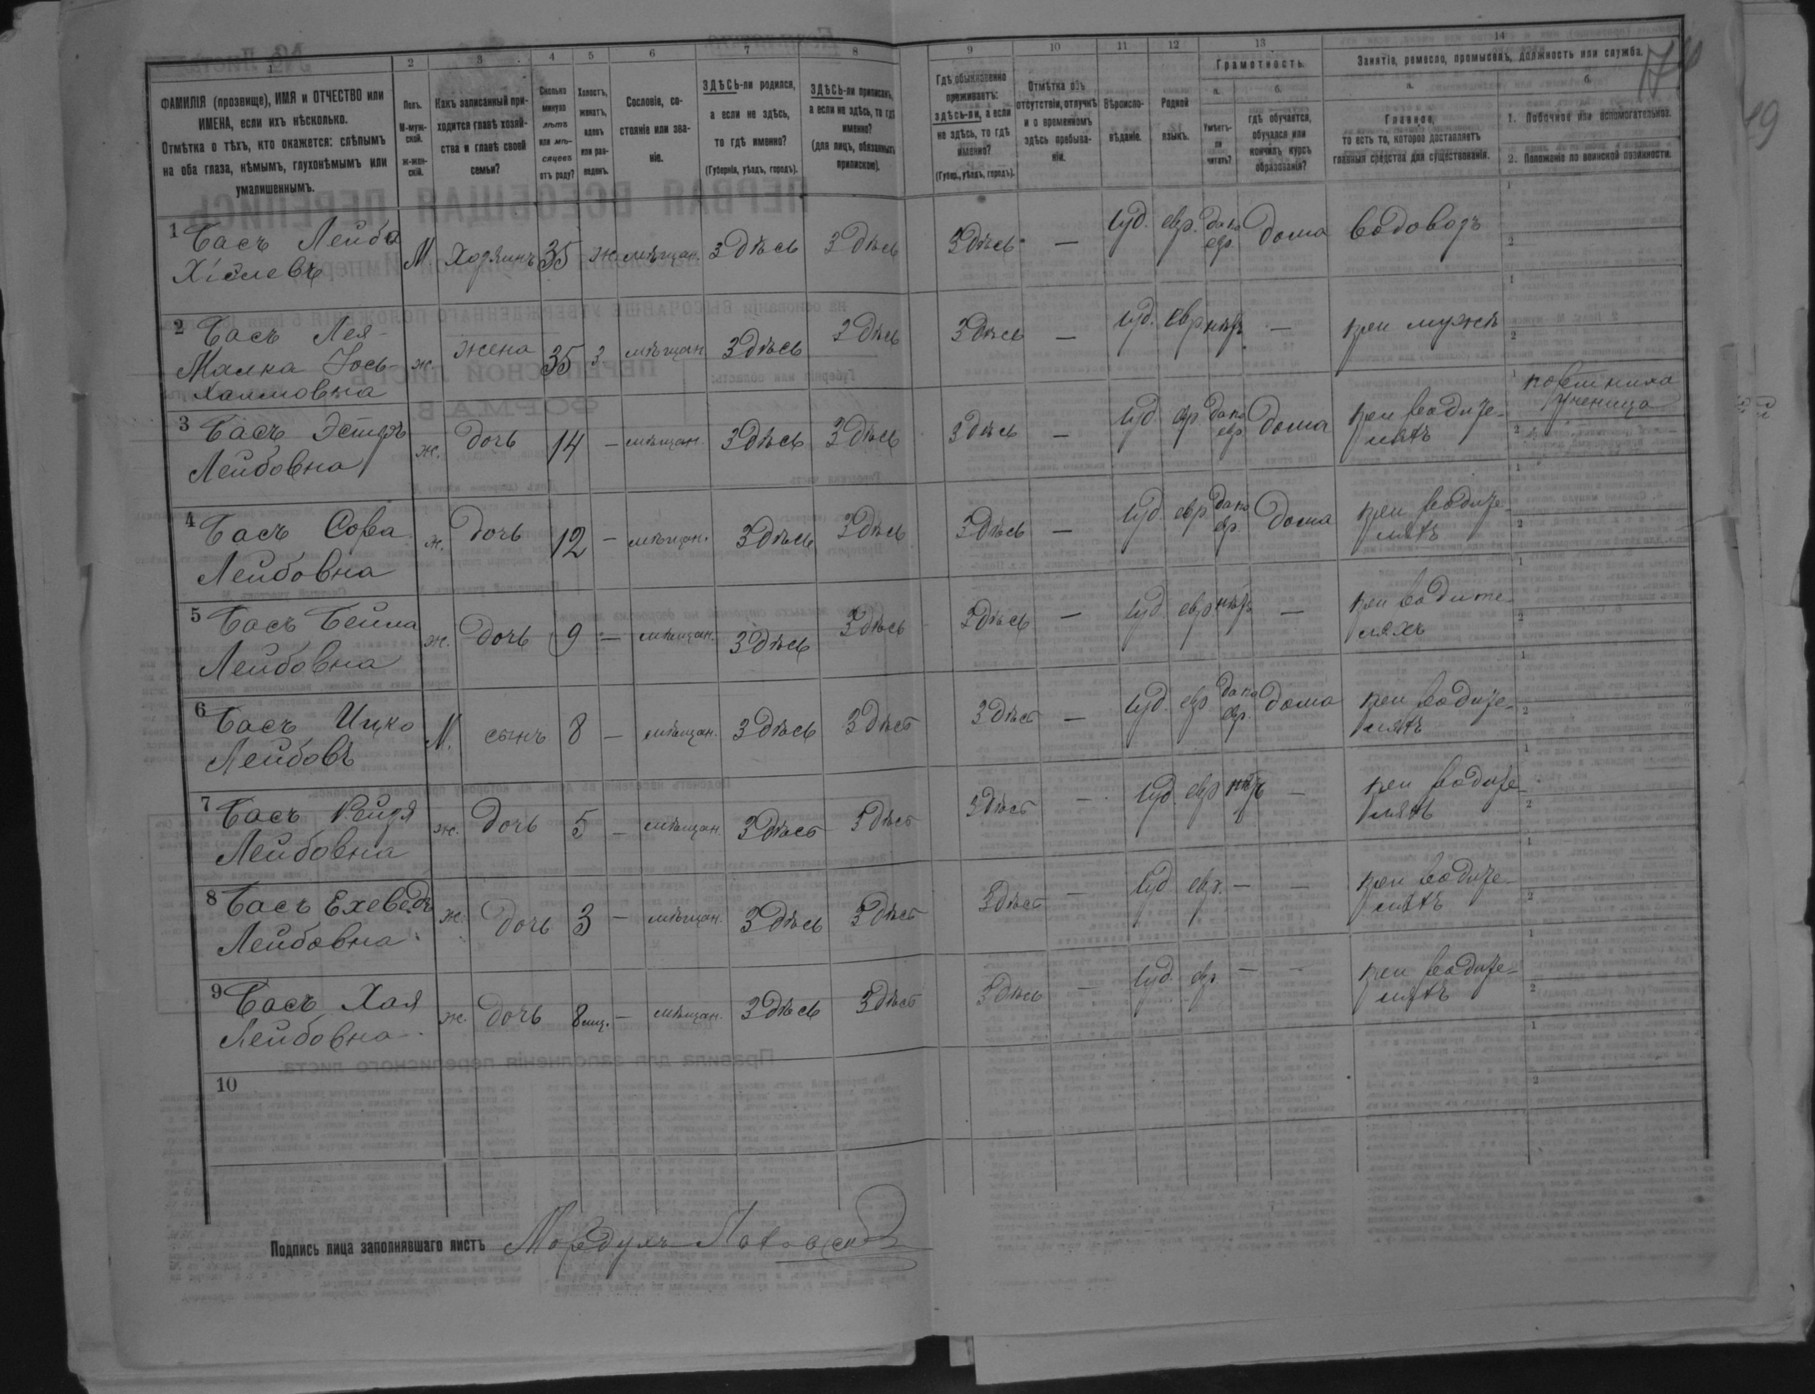 1 2 3 4 5 6 7 8 9 10 11 12 13 14
ФАМИЛІЯ (прозвище), ИМЯ и ОТЧЕСТВО или ИМЕНА, если ихъ нѣсколько.
Отмѣтка о тѣхъ, кто окажется: слѣпымъ на оба глаза, нѣмымъ, глухонѣмымъ или умалишеннымъ.
Полъ.
М-мужской.
Ж-женскій.
Какъ записанный приходится главѣ хозяйства и главѣ своей семьи?
Сколько минуло лѣтъ или мѣсяцевъ отъ роду?
Холостъ, женатъ, вдовъ или разведенъ.
Сословіе, состояніе или званіе.
ЗДѢСЬ-ли родился, а если не здѣсь, то гдѣ именно?
(Губернія, уѣздъ, городъ).
ЗДѢСЬ-ли приписанъ, а если не здѣсь, то гдѣ именно?
(для лицъ, обязанныхъ припискою).
Гдѣ обыкновенно проживаетъ: здѣсь-ли, а если не здѣсь, то гдѣ именно?
(Губер., уѣздъ, городъ).
Отмѣтка объ отсутствіи, отлучкѣ и о временномъ здѣсь пребываніи.
Вѣроисповѣданіе.
Родной языкъ.
Грамотность.
а.
Умѣетъ-ли читать?
б.
гдѣ обучается, обучался или кончилъ курсъ образованія?
Занятіе, ремесло, промыселъ, должность или служба.
а.
Главное,
то есть то, которое доставляетъ главныя средства для существованія.
б.
1. Побочное или вспомогательное.
2. Положеніе по воинской повинности.
19
1 Басъ Лейба
Хіелевъ М Хозяинъ 35 ж мѣщан. Здѣсь Здѣсь Здѣсь — іуд. евр. да по евр. дома водовозъ
2 Басъ Лея-
Малка Іось-
Хаимовна ж жена 35 з мѣщан Здѣсь Здѣсь Здѣсь — іуд. евр нѣтъ — при мужѣ
3 Басъ Эстеръ
Лейбовна ж. дочь 14 — мѣщан. Здѣсь Здѣсь Здѣсь — іуд. евр да по евр дома при родителяхъ портниха ученица
4 Басъ Сора
Лейбовна ж. дочь 12 — мѣщан. Здѣсь Здѣсь Здѣсь — іуд евр да по евр. дома при родителяхъ
5 Басъ Бейла
Лейбовна ж. дочь 9 — мѣщан. Здѣсь Здѣсь Здѣсь — іуд. евр нѣтъ — при родителяхъ
6 Басъ Ицко
Лейбовъ М. сынъ 8 — мѣщан. Здѣсь Здѣсь Здѣсь — іуд. евр да по евр. дома при родителяхъ
7 Басъ Рейзя
Лейбовна ж. дочь 5 — мѣщан. Здѣсь Здѣсь Здѣсь — іуд евр нѣтъ — при родителяхъ
8 Басъ Ехеведъ
Лейбовна ж дочь 3 — мѣщан. Здѣсь Здѣсь Здѣсь — іуд евр. — — при родителяхъ
9 Басъ Хая
Лейбовна ж. дочь 8 мц. — мѣщан. Здѣсь Здѣсь Здѣсь — іуд. евр — — при родителяхъ
10
Подпись лица заполнявшаго листъ